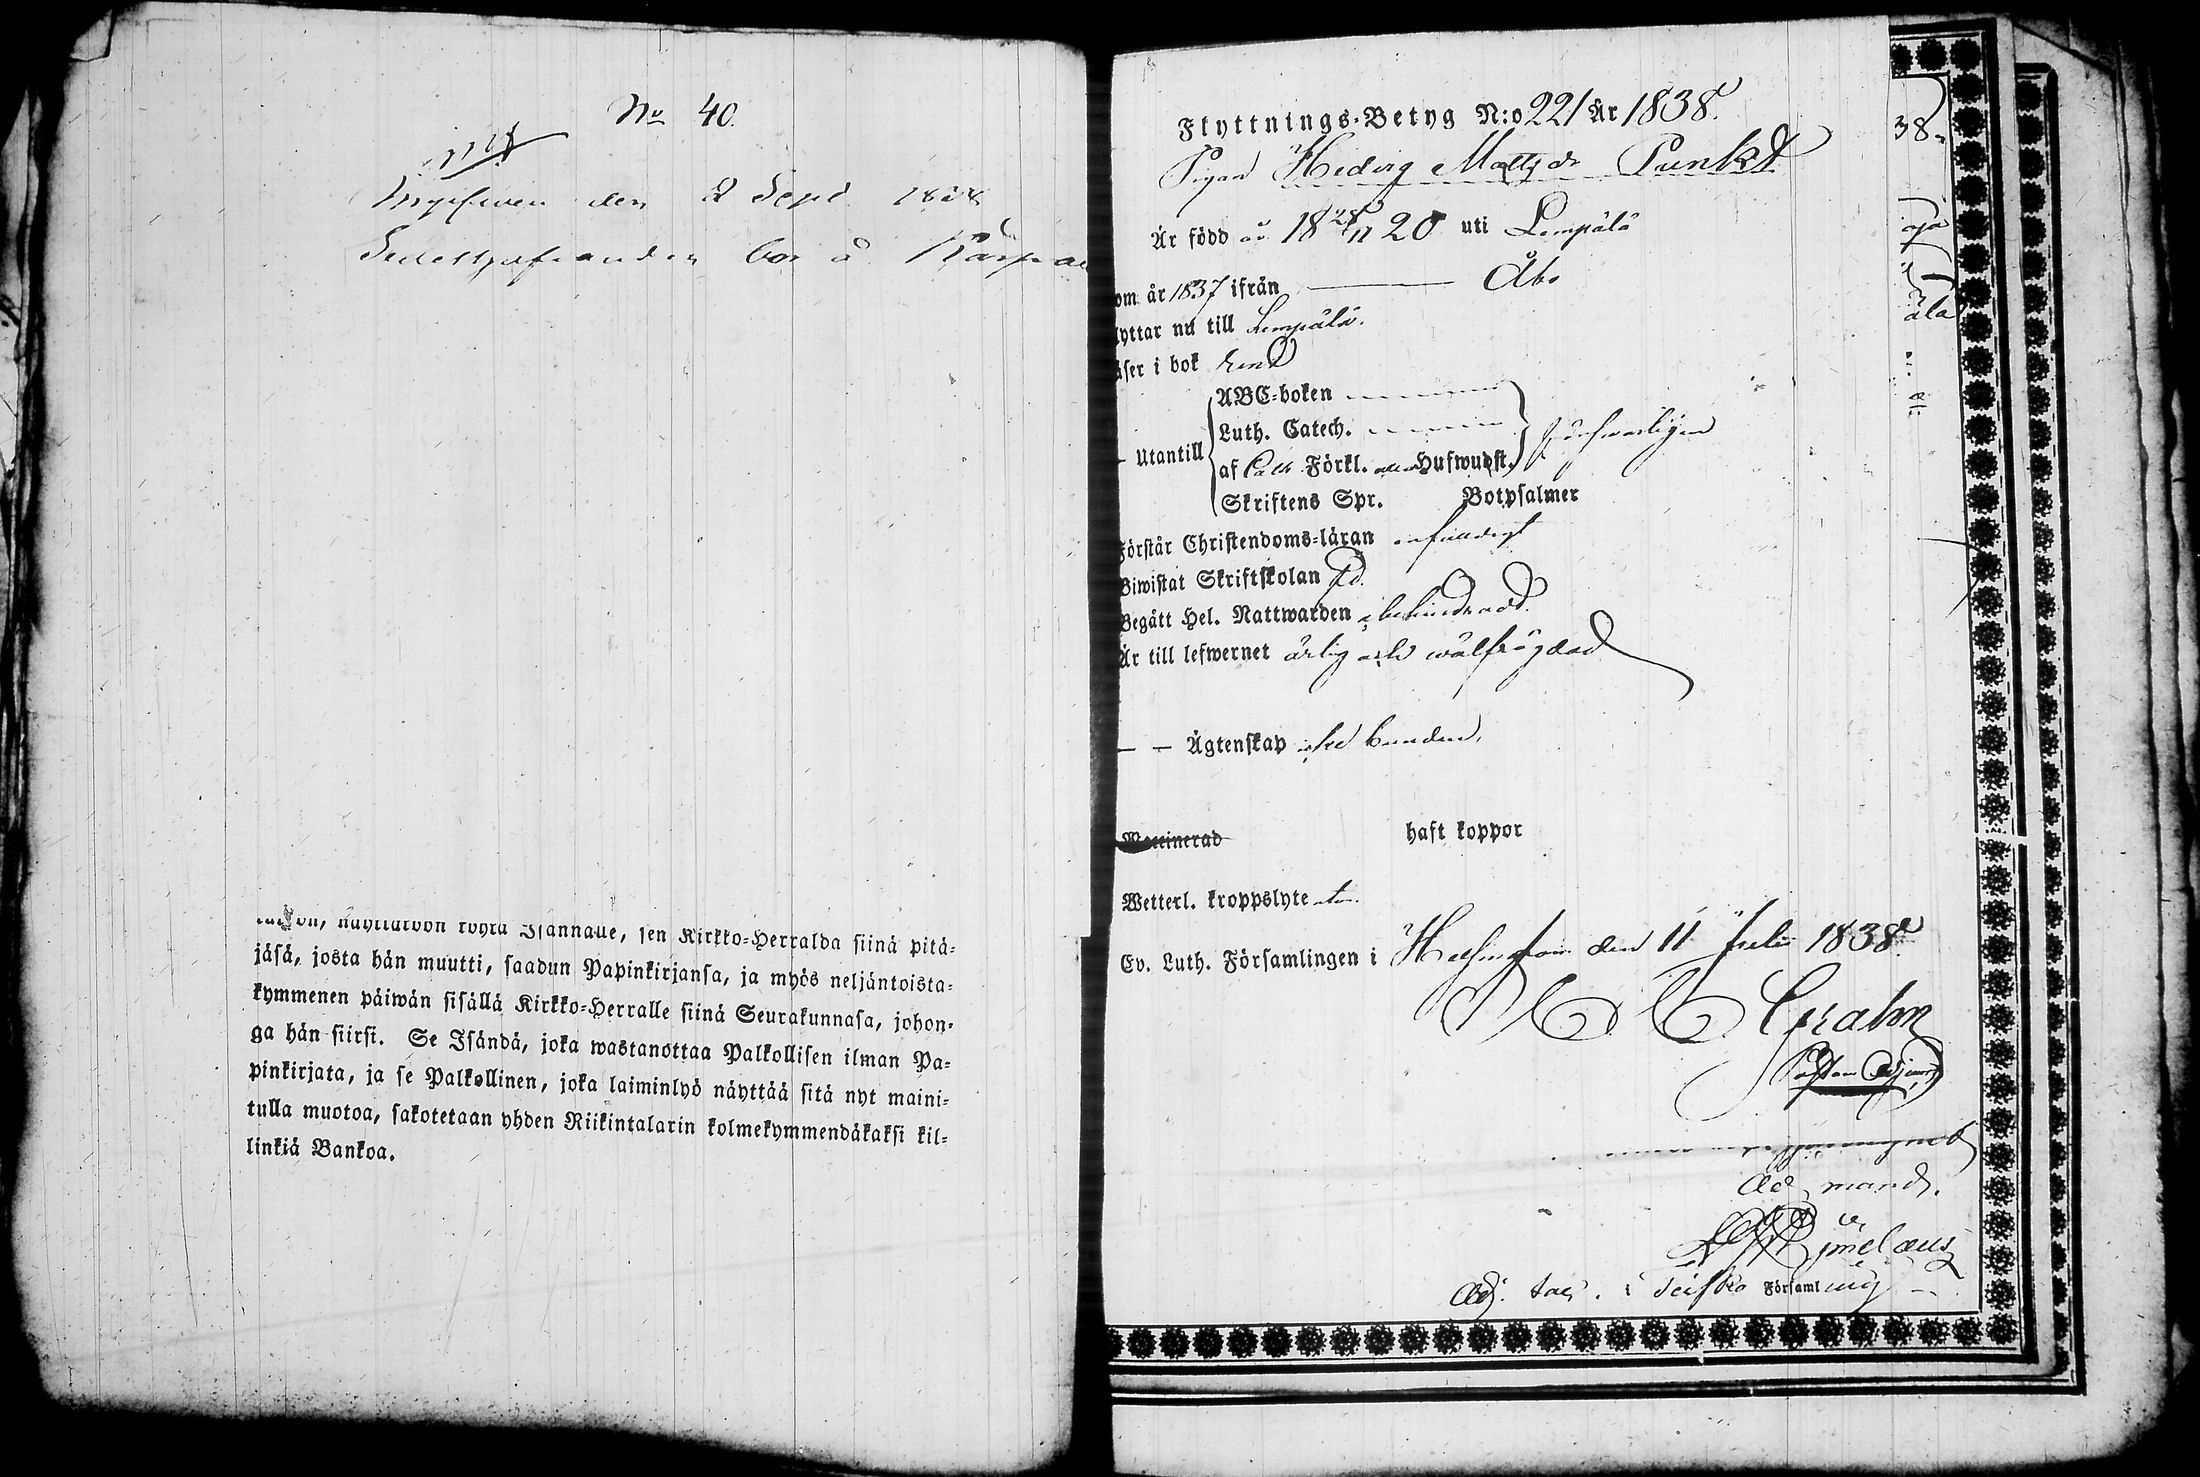 No 40.
Ingifwen den 2 Sept 1838
bor å
näyttäköön Isännälle, sen Kirkko-Herralda siinä pitä-
jäsä, josta hän muutti, saadun Papinkirjansa, ja myös neljäntoista-
kymmenen päiwän sisällä Kirkko-Herralle siinä Seurakunnasa, johon-
ga hän siirsi. Se Isändä, joka wastanottaa Palkollisen ilman Pa-
pinkirjata, ja se Palkollinen, joka laiminlyö näyttää sitä nyt maini-
tulla muotoa, sakotetaan yhden Riikintalarin kolmekymmendäkaksi kil-
linkiä Bankoa.
Flyttnings-Betyg N:o 221 År 1838.
Pigan Hedvig Mattsdr Punkt
Är född år 18 28/11 20 uti Lempälä
om år 1837 ifrån Åbo
lyttar nu till Lempälä.
äser i bok rent
ABC-boken
Luth. Catech.
Utantill
af Cate Förkl. Hufwudst. försvarligen
Skriftens Spr. Botpsalmer
Förstår Christendoms-läran enfaldigt
Biwistat Skriftskolan
Begått Hel. Nattwarden obehindrad.
Är till lefwernet ärlig och wälfrägdad
— — Ägtenskap icke bunden.
Waccinerad haft koppor
Wetterl. kroppslyte utan
Ev. Luth. Församlingen i Helsingfors den 11 Julii 1838.
Crahn
Pastors Adjunct
Ad mand.
Adj. Sac. i Teisko Församling
38.
äla